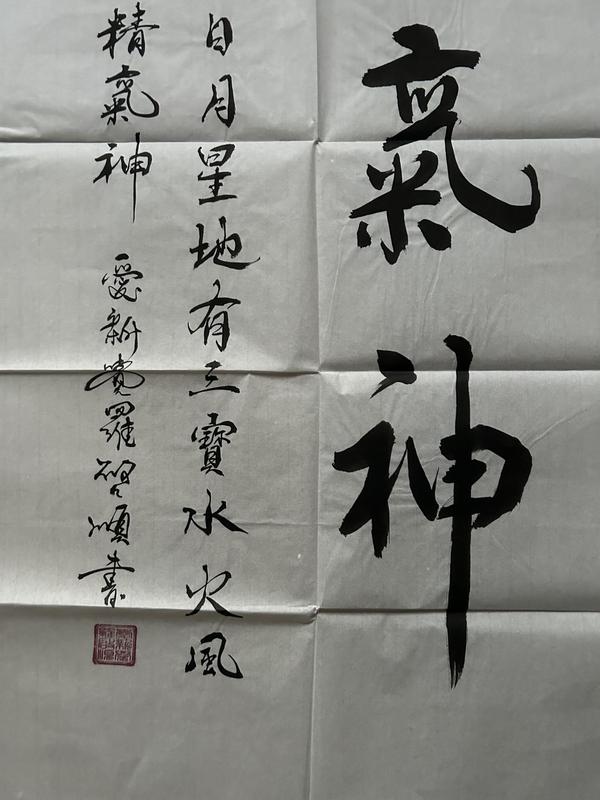 氣神
日月星地有三寶水火風
精氣神 愛新覺羅啓順書